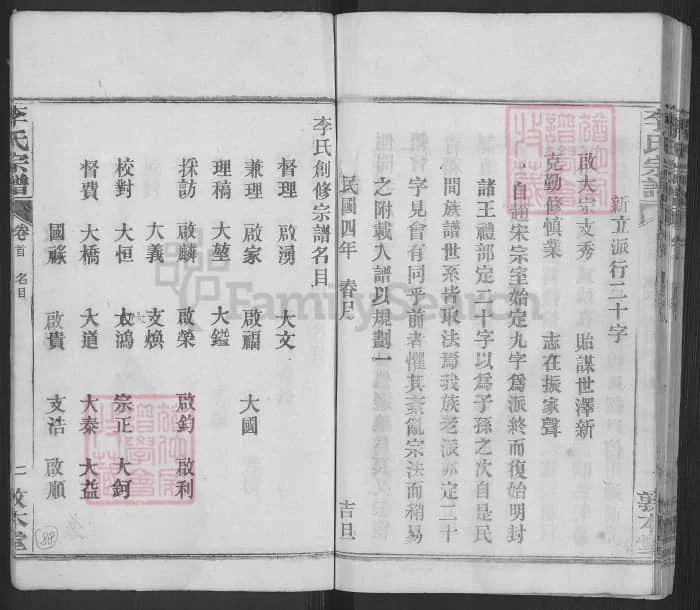 新立派行二十字
啟大宗支秀 貽謀世澤新
克勤修慎業 志在振家聲
自趙宋宗室始定九字爲派終而復始明封
諸王禮部定二十字以爲子孫之次自是民
間族譜世系皆取法焉我族老派亦定二十
字見會有同乎前者懼其紊亂宗法而稍易
之附載入譜以規劃一
民國四年 春月 吉旦
李氏創修宗譜名目
督理 啟湧 大文
兼理 啟家 啟福 大國
理稿 大堃 大鎰
採訪 啟麟 啟榮 啟鈞 啟利
大義 支煥
校對 大恒 大鴻 宗正 大鈳
督費 大橋 大道 大泰 大益
國祿 啟貴 支浩 啟順
李氏宗譜
卷首 名目
二 敦本堂
88
李氏宗譜
敦本堂
FamilySearch